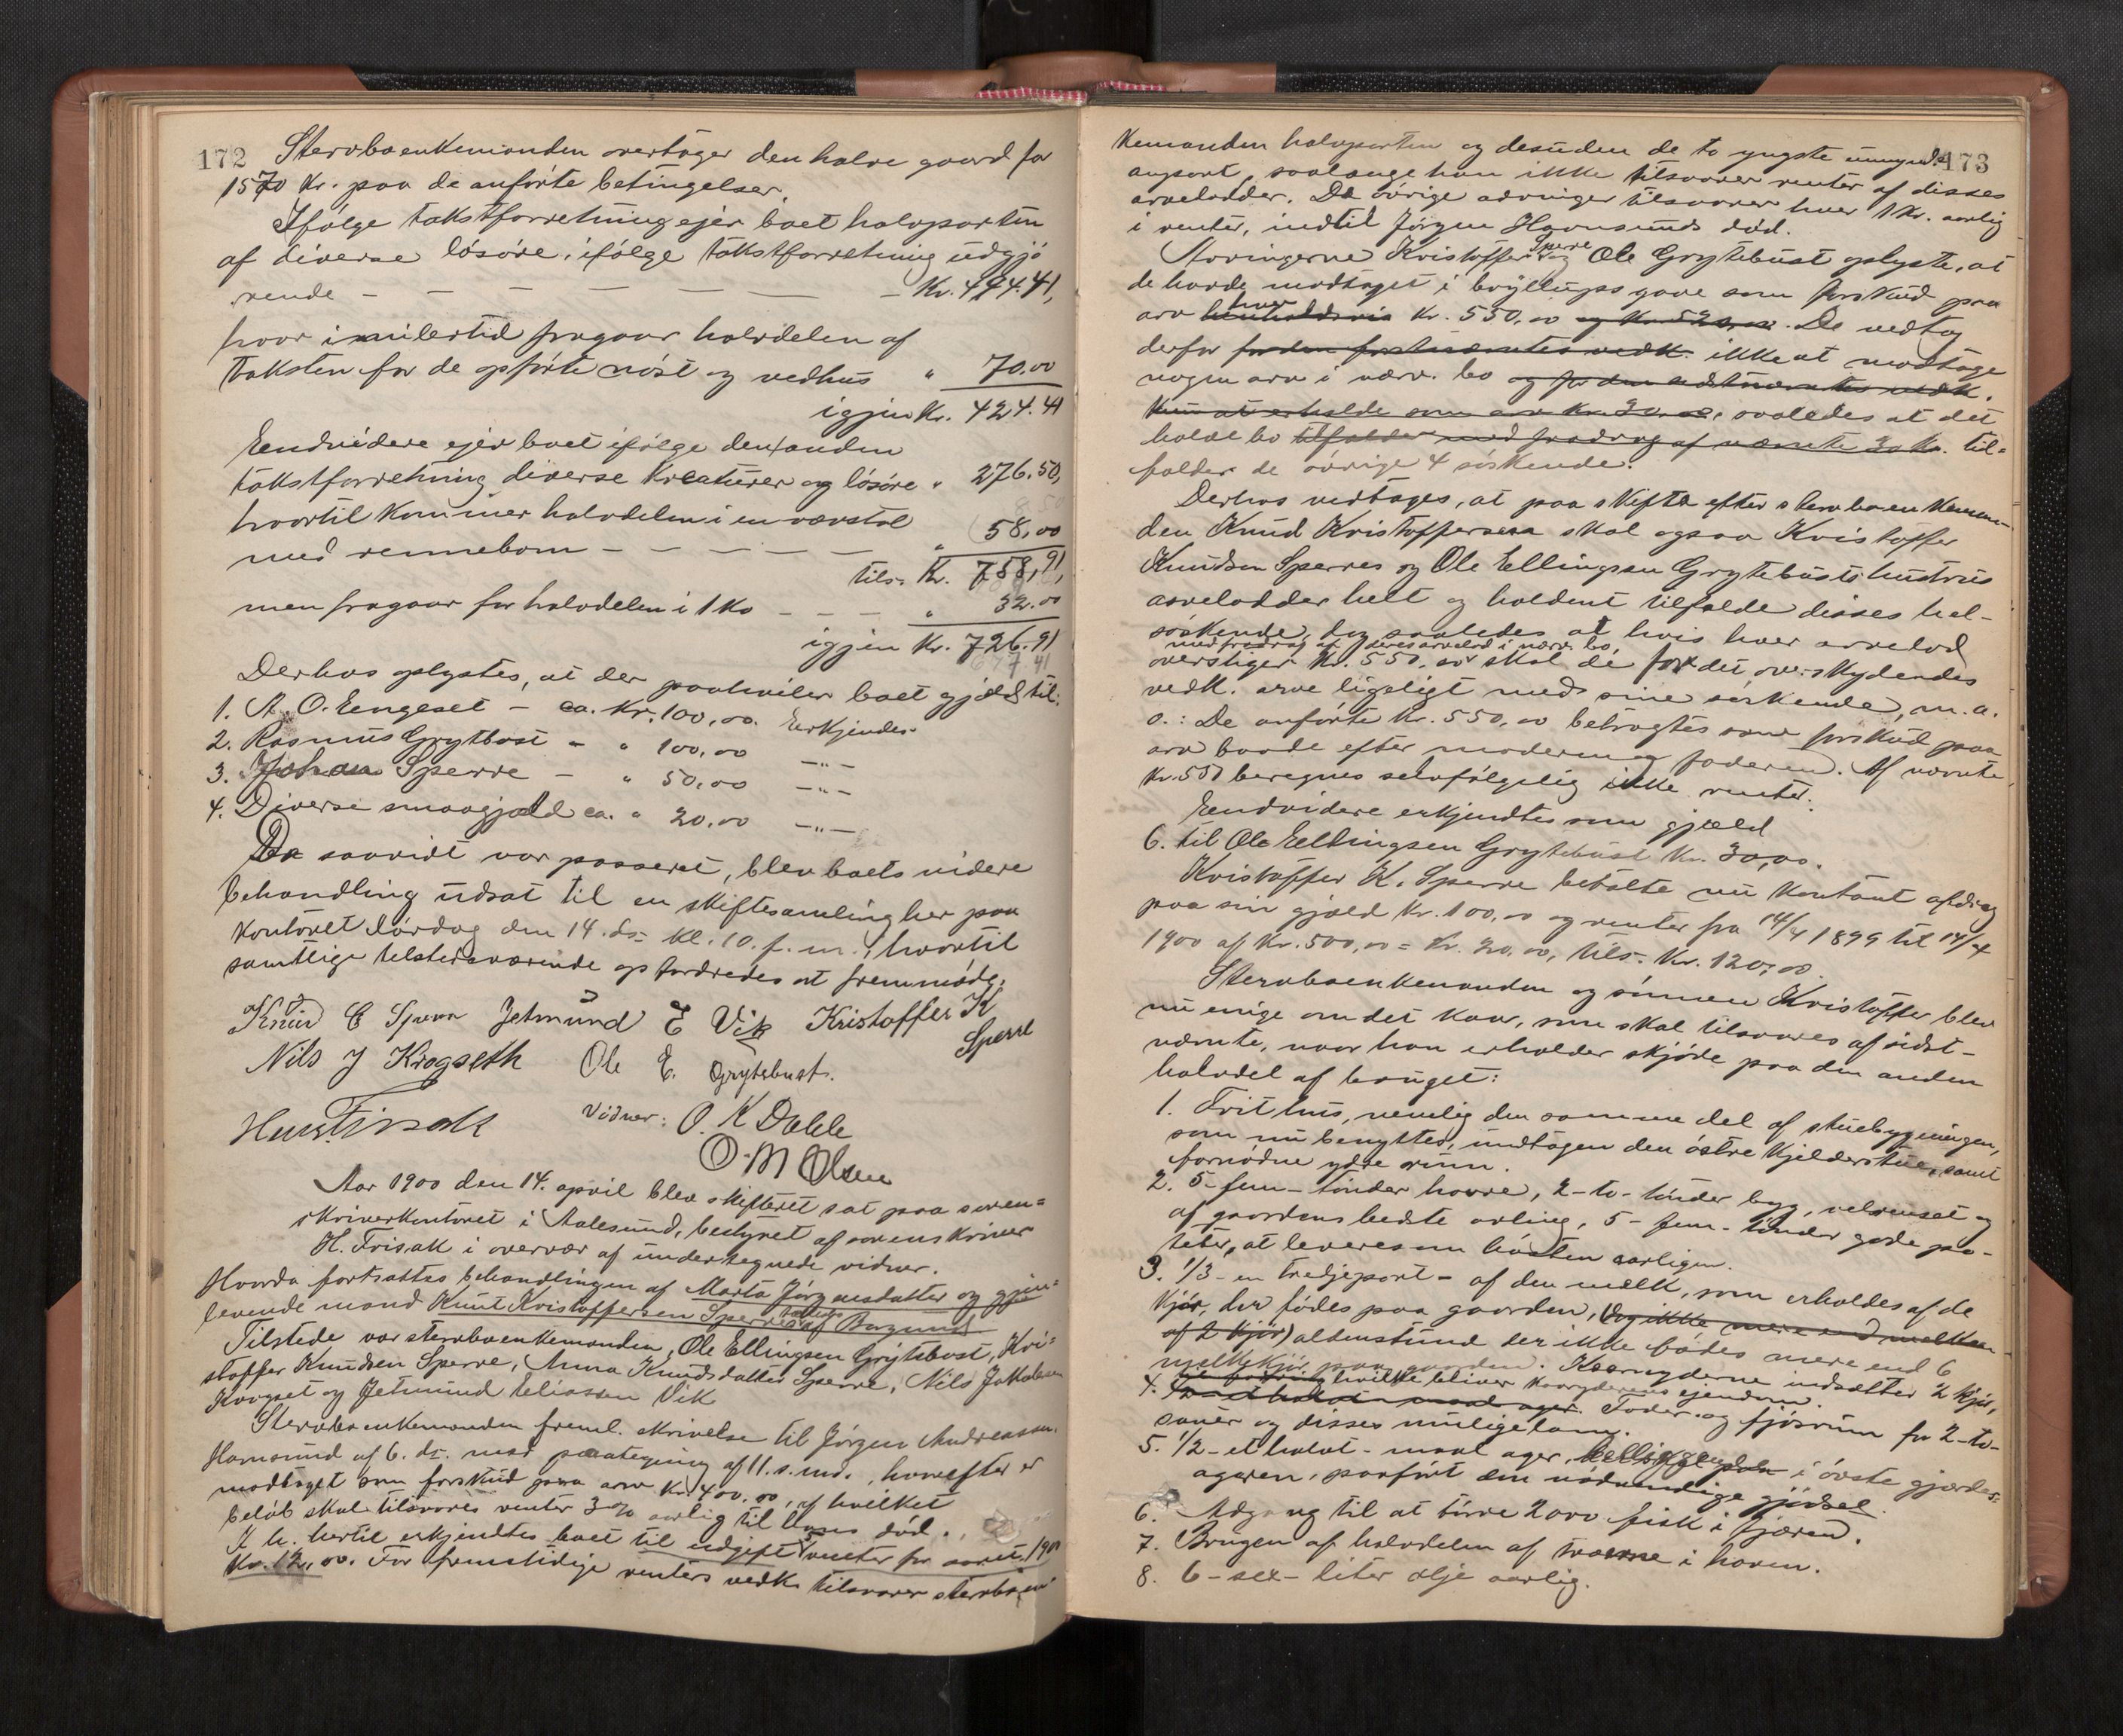 172 Stervboenkemanden overtager den halve gaard for
1570 Kr. paa de anførte betingelser.
Ifølge takstforretning ejer boet halvparten
af diverse løsøre, ifølge takstforretning udgjø
rende - - - - - - Kr. 494.41,
hvor imidlertid fragaar halvdelen af
taksten for de opførte nøst og vedhus " 70.00
igjen Kr. 424.41
Endvidere ejer boet ifølge den anden
takstforretning diverse Kreaturer og løsøre " 276.50,
hvortil kommer halvdelen i en vævstol
med rennebom - - - - - " 58,00
tils. Kr. 758,91,
men fragaar for halvdelen i 1 Ko - - - " 32.00
igjen Kr. 726.91
677 41
Derhos oplystes, at der paahviler boet gjæld til:
1. A. O. Eengeset - ca. Kr. 100,00. Erkjendes.
2. Rasmus Grytbost - " 100,00 -"-
3. Johan Sperre - " 50,00 -"-
4. Diverse smaagjæld ca. " 20,00 -"-
Da saavidt var passeret, blev boets videre
behandling udsat til en skiftesamling her paa
kontoret Lørdag den 14. ds. kl. 10. f. m., hvortil
samtlige tilstedeværende opfordredes at fremmøde.
Knud C Sperre Jetmund E Vik Kristoffer K
Sperre
Nils J Krogseth Ole E. Grytebust.
H. Frisak Vidner: O. K Dahle
O. M Olsen
Aar 1900 den 14. april blev skifteret sat paa soren=
skriverkontoret i Aalesund, bestyret af sorenskriver
H. Frisak i overvær af undertegnede vidner.
Hvorda fortsattes behandlingen af Marta Jørgensdatter og gjen=
levende mand Knut Kristoffersen Sperres af Borgund
Tilstede var stervboenkemanden, Ole Ellingsen Grytebost, Kri=
stoffer Knudsen Sperre, Anna Knudsdatter Sperre, Nils Jakobsen
Krogset og Jetmund Eliassen Vik
Stervboenkemanden freml. skrivelse til Jørgen Andreassen
Hamsund af 6. ds. med paategning af 11. s. md., hvorefter er
modtaget som forskud paa arv Kr. 400,00, af hvilket
beløb skal tilsvares renter 3% aarlig til hans død.
I h. hertil erkjendtes boet til udgift 5 renter for aaret 1900
Kr. 12,00. For fremtidige renters vedk. tilsvarer stervboen=
173
kemanden halvparten og desuden de to yngste umynd.
anpart, saalænge han ikke tilsvarer renter af disses
arvelodder. De øvrige arvinger tilsvarer hver 1 Kr. aarlig
i renter, indtil Jørgen Havnsunds død.
Arvingerne Kristoffer Sperre og Ole Grytebust oplyste, at
de havde modtaget i bryllupsgave som forskud paa
arv henholdsvis hver Kr. 550,00 og Kr. 520,00. De vedtog
derfor for den førstnævntes vedk. ikke at modtage
nogen arv i nærv. bo og for den sidstnævntes vedk.
kun at erholde som arv Kr. 30,00, saaledes at det
halve bo tilfalder med fradrag af nævnte 30 Kr. til=
falder de øvrige 4 søskende.
Derhos vedtages, at paa skifte efter stervboenkeman-
den Knud Kristoffersen skal ogsaa Kristoffer
Knudsen Sperres og Ole Ellingsen Grytebusts hustrus
arvelodder helt og holdent tilfalde disses hel-
søskende, dog saaledes at hvis hver arvelod
med fradrag af deres arvelod i nærv. bo,
overstiger Kr. 550,00 skal de for det overskydendes
vedk. arve ligeligt med sine søskende, m. a.
o.: De anførte Kr. 550,00 betragtes som forskud paa
arv baade efter moderen og faderen. Af nævnte
Kr. 550 beregnes selvfølgelig ikke renter.
Endvidere erkjendtes som gjæld
6. til Ole Ellingsen Grytebust Kr. 30,00.
Kristoffer K. Sperre betalte nu kontant afdrag
paa sin gjæld Kr. 100,00 og renter fra 14/4 1899 til 14/4
1900 af Kr. 500,00 = Kr. 20,00, tils. Kr. 120,00.
Stervboenkemanden og sønnen Kristoffer blev
nu enige om det kaar, som skal tilsvares af sidst-
nævnte, naar han erholder skjøde paa den anden
halvdel af bruget:
1. Frit hus, nemlig den samme del af stuebygningen,
som nu benyttes, undtagen den østre kjelderstue, samt
fornødne ydre rum.
2. 5- fem - tønder havre, 2- to - tønder byg, velrenset og
af gaardens bedste avling, 5 - fem - tønder gode po-
teter, at leveres om høsten aarligen.
3. 1/3 - en tredjepart - af den melk, som erholdes af de
kjør, der fødes paa gaarden, (dog ikke mere end melken
af 2 kjør) altenstund der ikke fødes mere end 6
melkekjør paa gaarden. Kaarnyderne indsætter 2 kjør,
hvilke bliver kaarydernes ejendom.
4. Foder- og fjøsrum for 2 - to -
sauer og disses mulige lam.
5. 1/2 - et halvt - maal ager, beliggende i øvste gjærdes-
ageren, paaført den nødvendige gjødsel.
6. Adgang til at tørre 2000 fisk i fjæren.
7. Brugen af halvdelen af træerne i haven.
8. 6 - sex - liter olje aarlig.